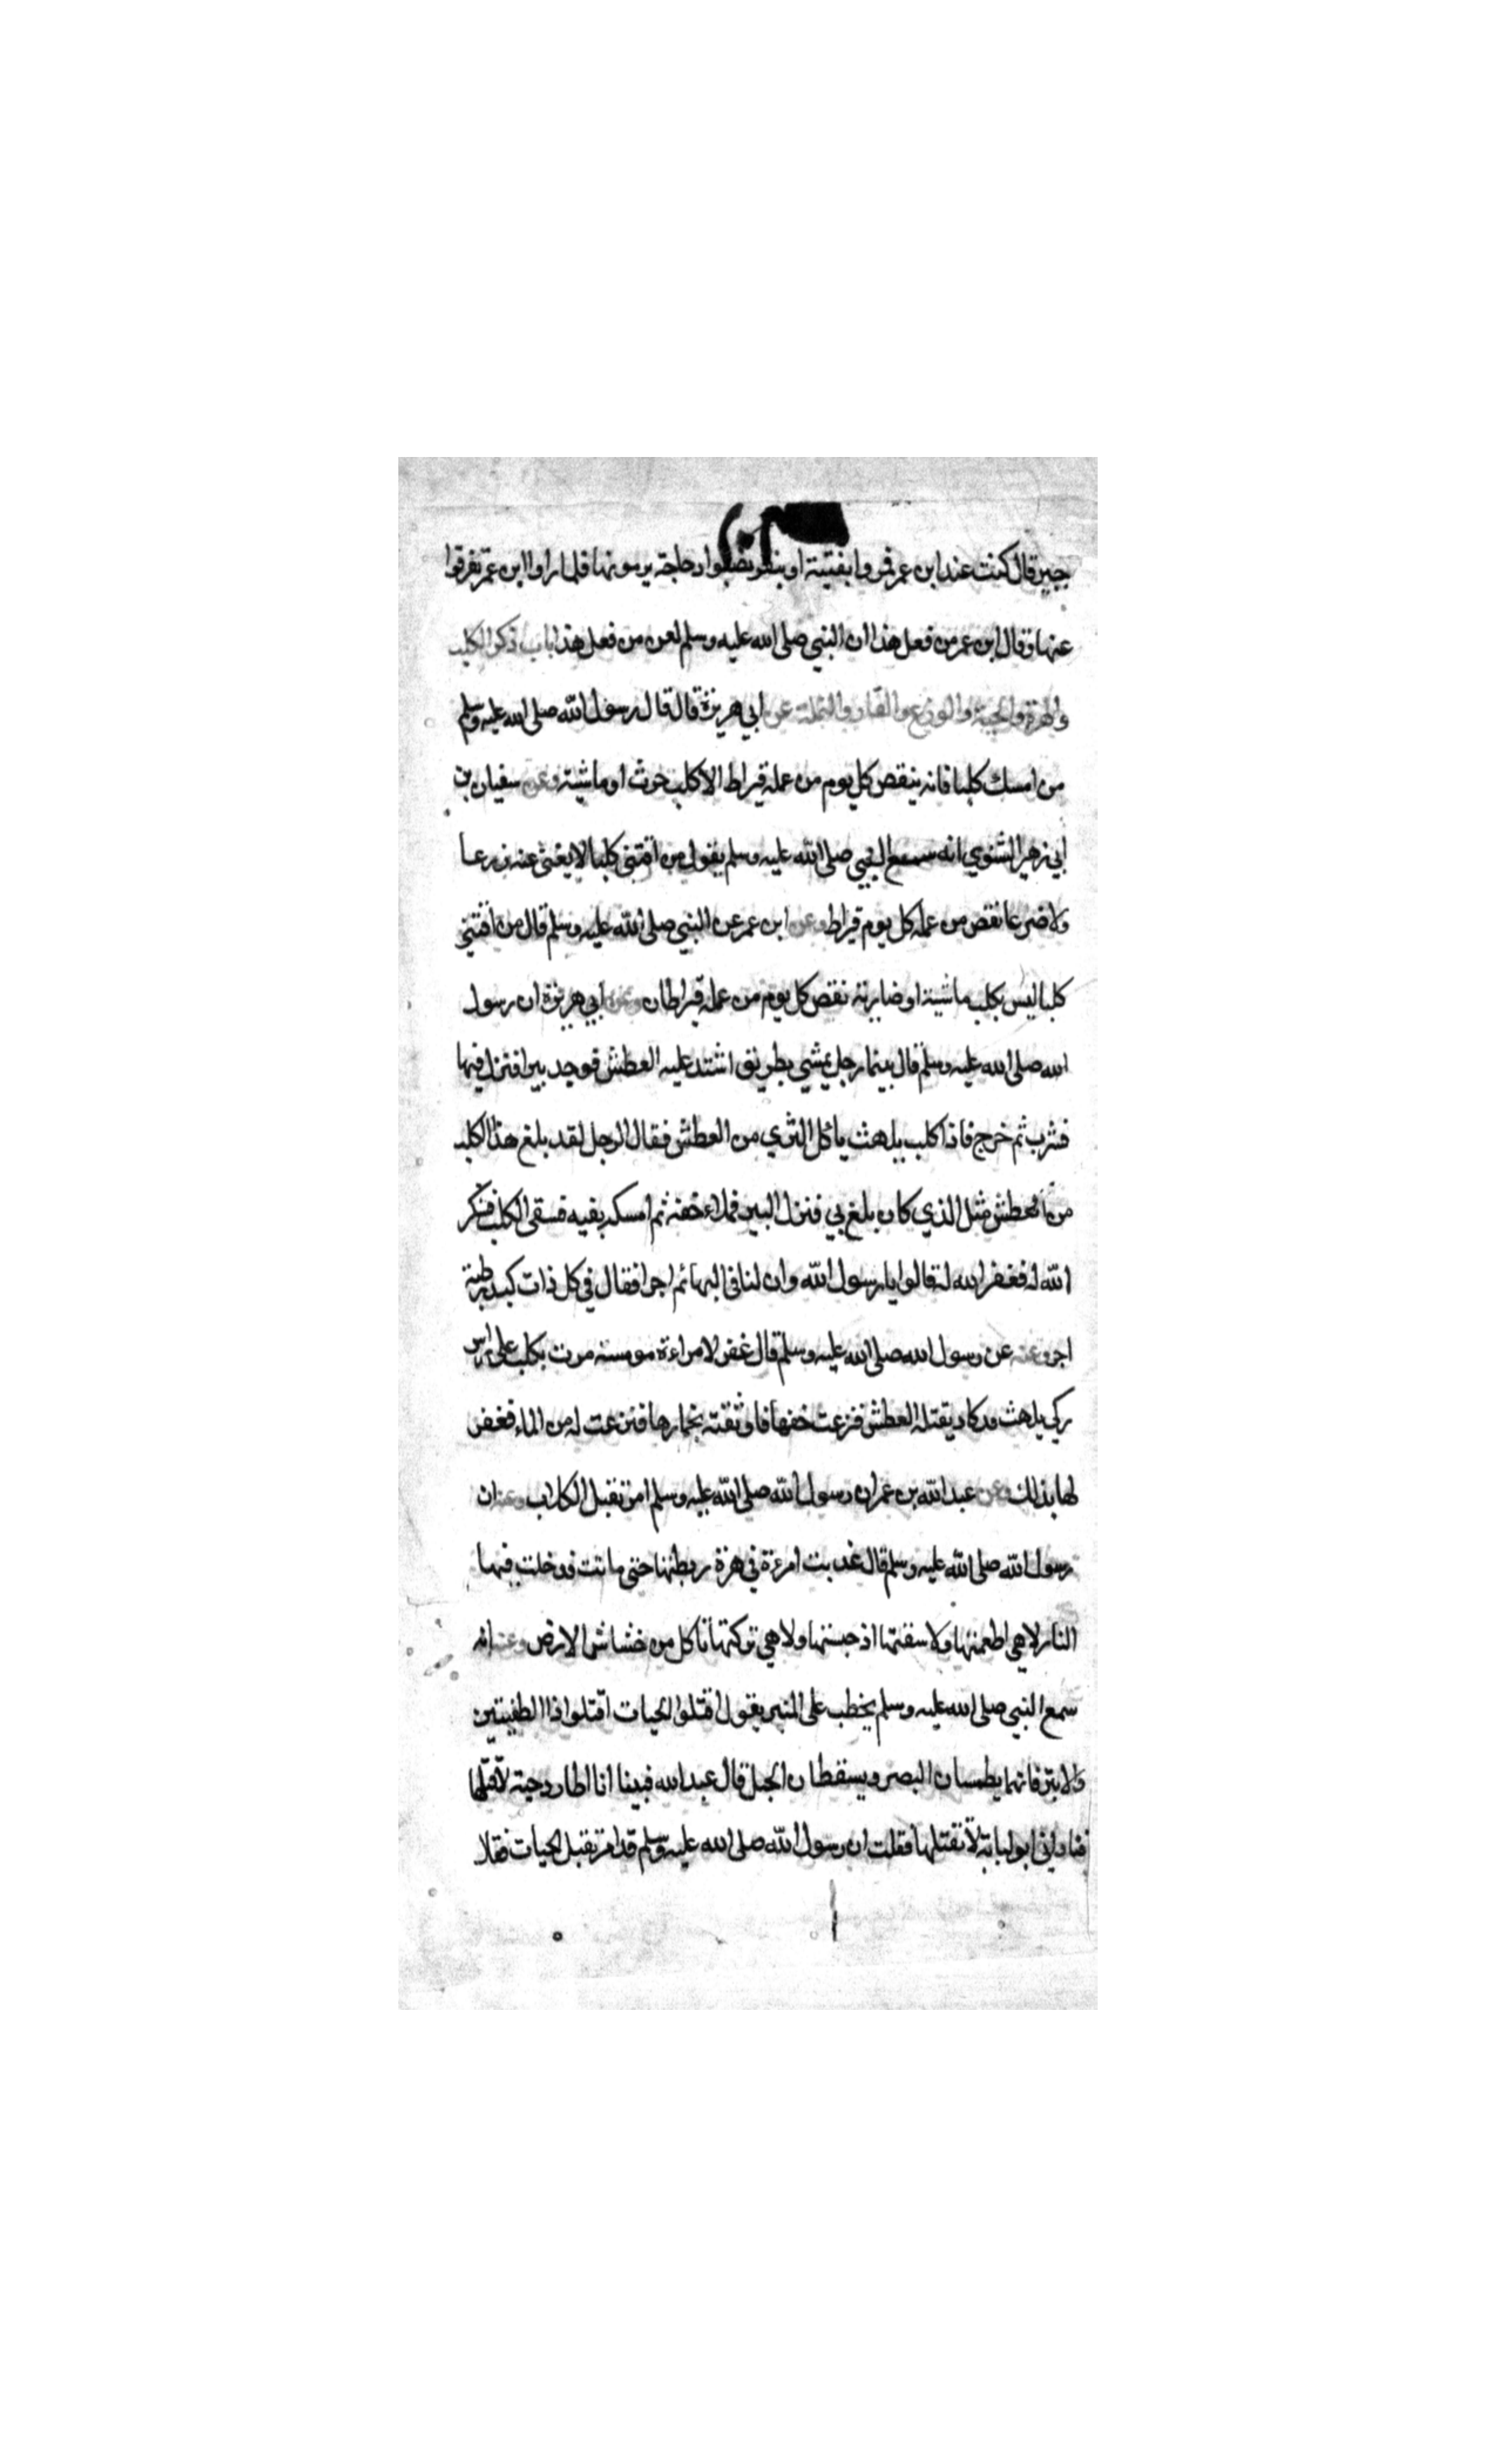 جبير قال كنت عند ابن عمر فمروا بفتية او بنفر نصبوا دجاجة يرمونها فلما راوا ابن عمر تفرقوا
عنها وقال ابن عمر من فعل هذا ان النبي صلى الله عليه وسلم لعن من فعل هذا باب ذكر الكلب
والهرة والحية والوزغ والفار والنملة عن ابي هريرة قال قال رسول الله صلى الله عليه وسلم
من امسك كلبا فانه ينقص كل يوم من عمله قيراط الا كلب حرث او ماشية وعن سفيان بن
ابي زهير الشنوي انه سمع النبي صلى الله عليه وسلم يقول من اقتنى كلبا لا يغني عنه زرعا
ولا ضرعا نقص من عمله كل يوم قيراط وعن ابن عمر عن النبي صلى الله عليه وسلم قال من اقتنى
كلبا ليس بكلب ماشية او ضارية نقص كل يوم من عمله قيراطان وعن ابي هريرة ان رسول
الله صلى الله عليه وسلم قال بينما رجل يمشي بطريق اشتد عليه العطش فوجد بيرا فنزل فيها
فشرب ثم خرج فاذا كلب يلهث ياكل الثرى من العطش فقال الرجل لقد بلغ هذا الكلب
من العطش مثل الذي كان بلغ بي فنزل البير فملاء خفه ثم امسكه بفيه فسقى الكلب فشكر
الله له فغفر الله له قالوا يا رسول الله وان لنا في البهائم اجرا فقال في كل ذات كبد رطبة
اجر وعنه عن رسول الله صلى الله عليه وسلم قال غفر لامراءة مومسة مرت بكلب على راس
ركي يلهث قد كاد يقتله العطش فنزعت خفها فاوثقته بخمارها فنزعت له من الماء فغفر
لها بذلك وعن عبد الله بن عمر ان رسول الله صلى الله عليه وسلم امر بقتل الكلاب وعنه ان
رسول الله صلى الله عليه وسلم قال عذبت امرءة في هرة ربطتها حتى ماتت فدخلت فيها
النار لا هي اطعمتها ولا سقتها اذ حبستها ولا هي تركتها تاكل من خشاش الارض وعنه انه
سمع النبي صلى الله عليه وسلم يخطب على المنبر يقول اقتلوا الحيات اقتلوا ذا الطفيتين
والابتر فانهما يطمسان البصر ويسقطان الحبل قال عبد الله فبينا انا اطارد حية لاقتلها
فناداني ابو لبابة لا تقتلها فقلت ان رسول الله صلى الله عليه وسلم قد امر بقتل الحيات فقال